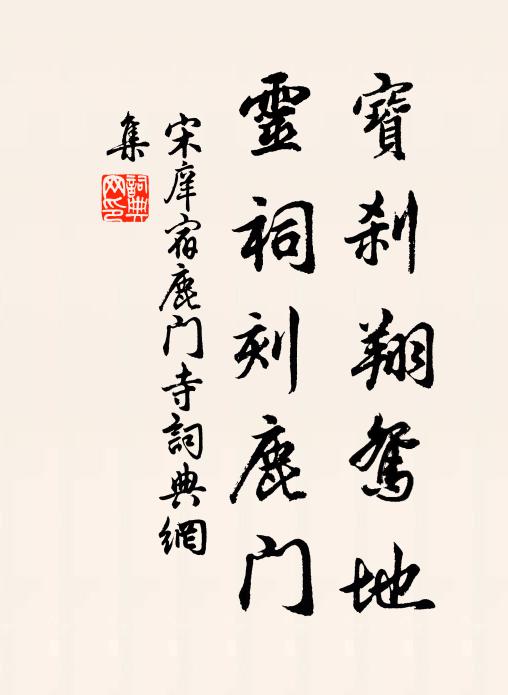 寶刹翔鴛地
靈祠刻鹿门
宋庠宿鹿门寺詞典網
集
詞典
网印